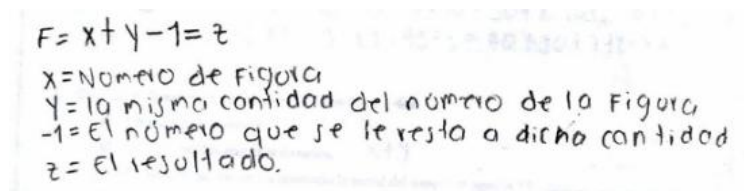 F= x+y-1= z
x=Número de Figura
y= la misma cantidad del número de la Figura
-1= El número que se le resta a dicha cantidad
z= El resultado.